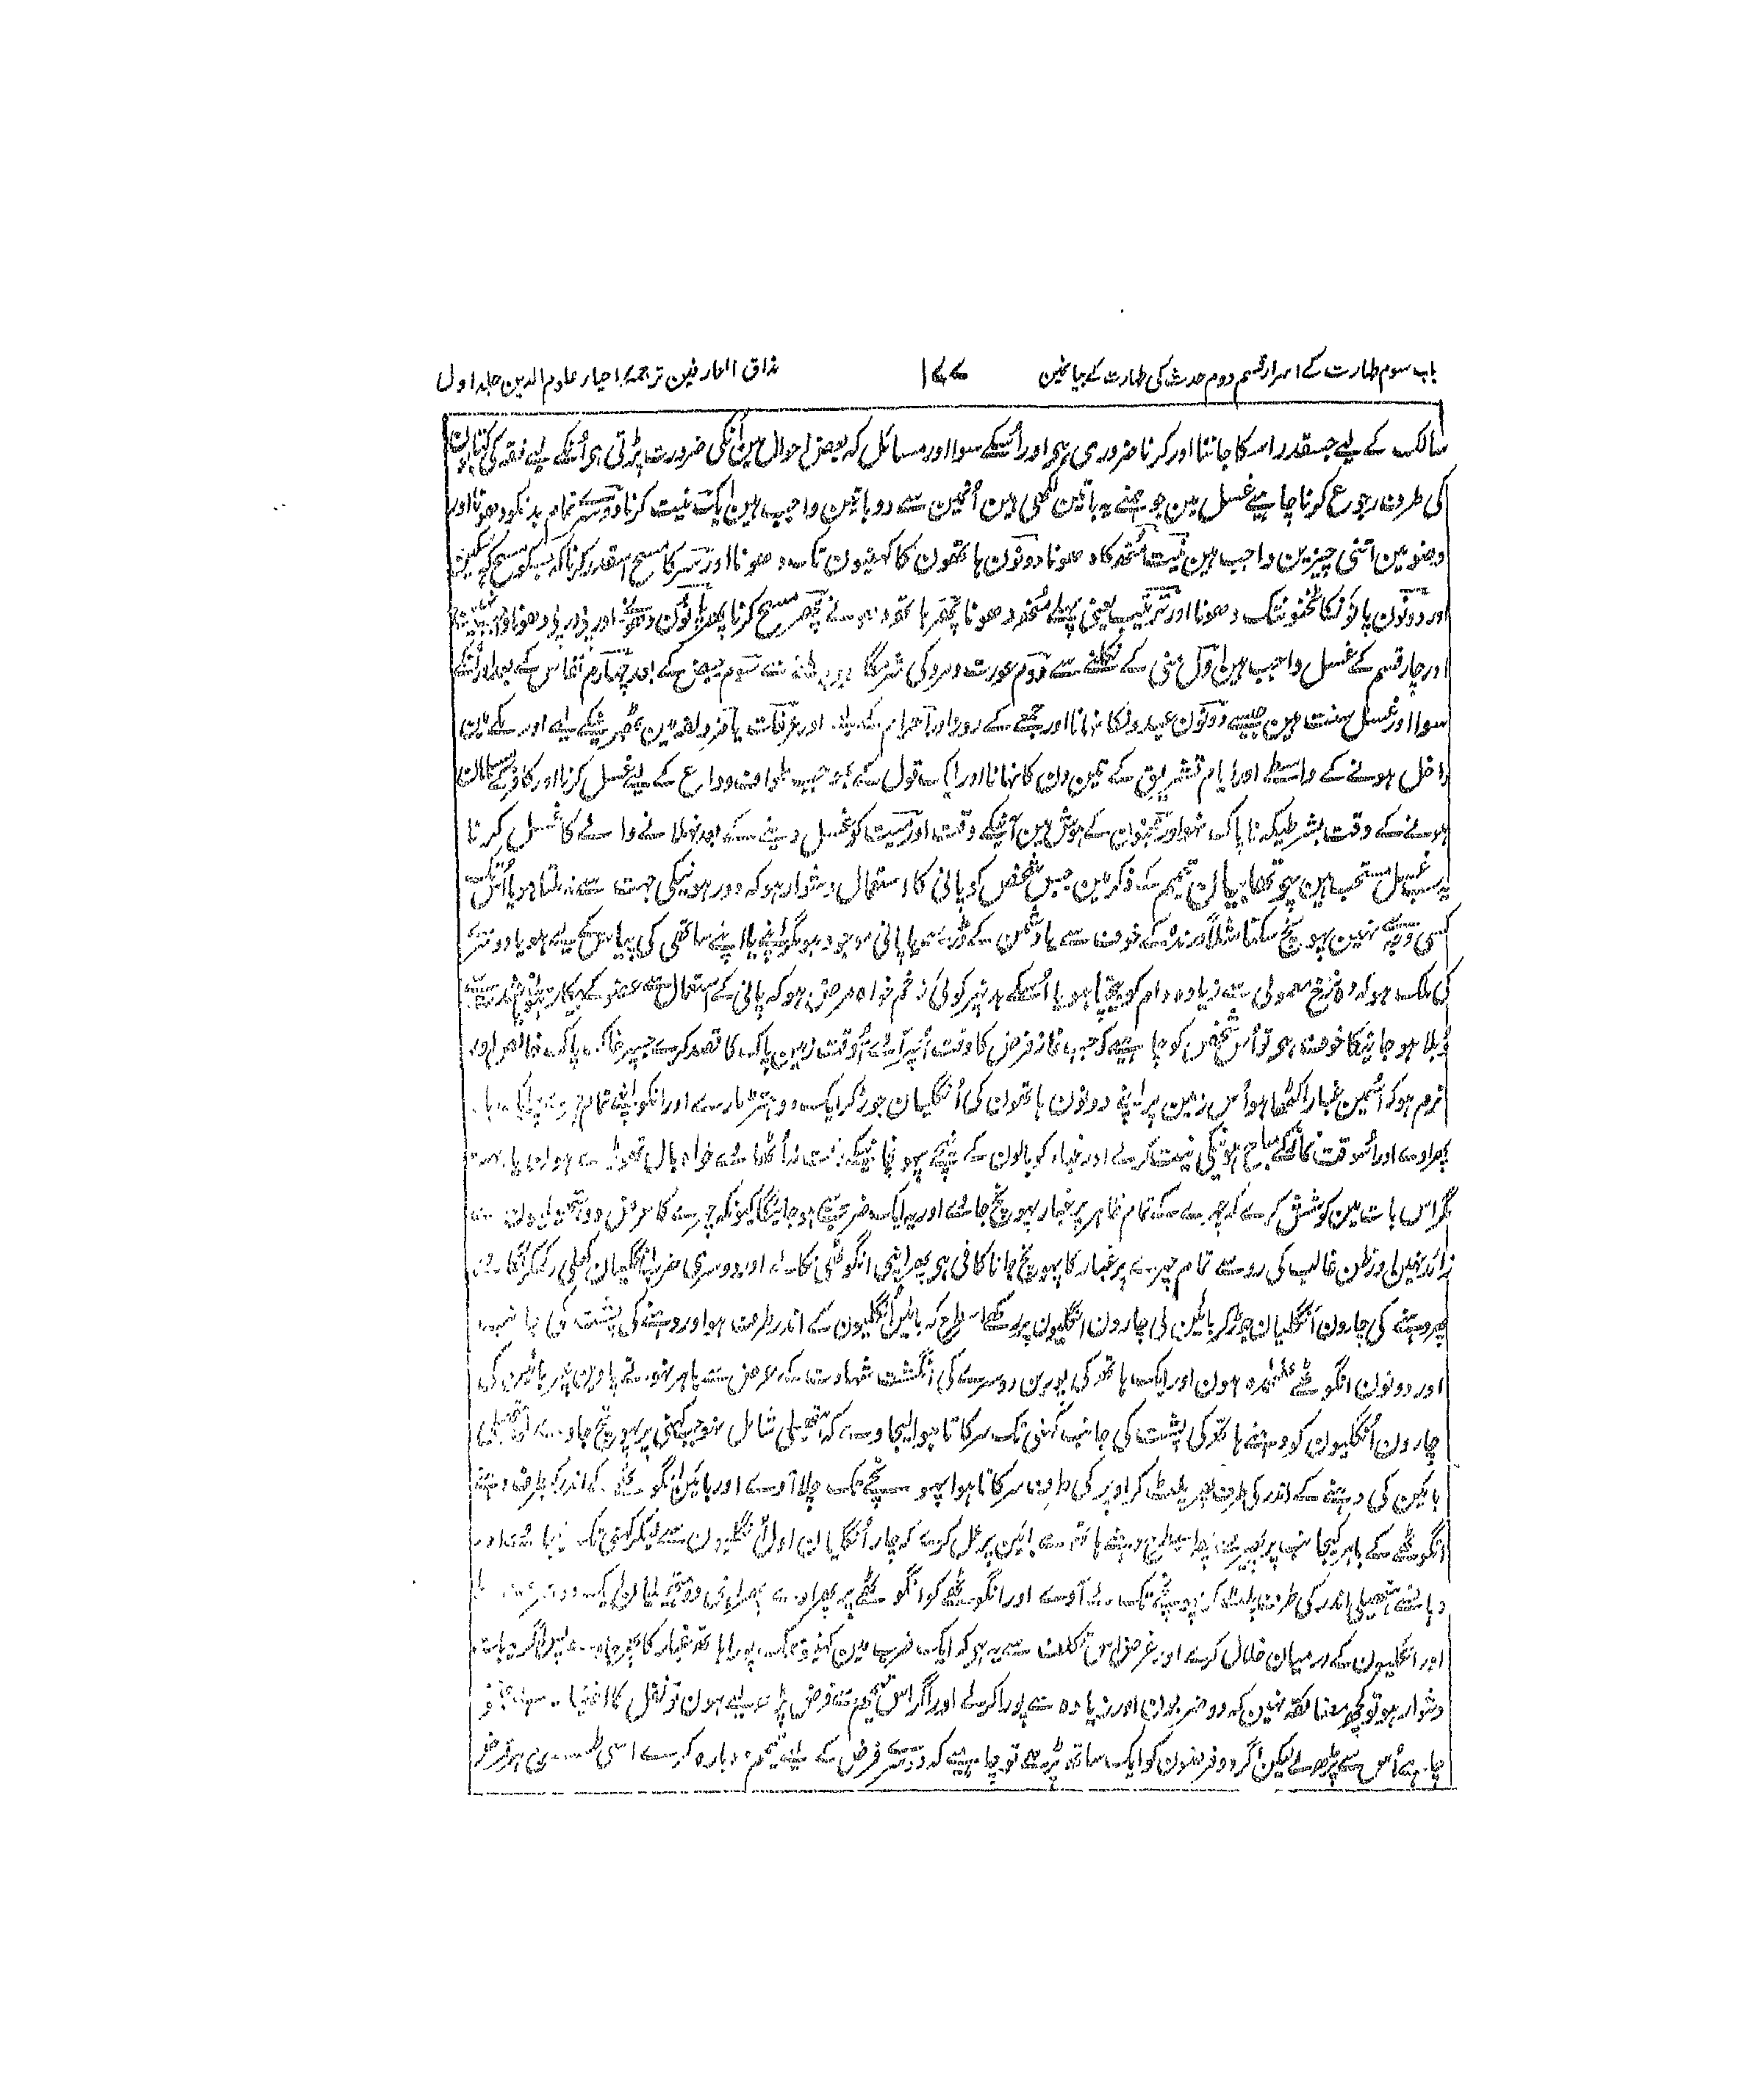 باب سوم طہارت کے اسرار قسم دوم حدث کی طہارت کے بیانمین
۱۷۷
مذاق العارفین ترجمہ احیاء علوم الدین جلد اول
سالک کے لیے جسقدر اسکا جاننا اور کرنا ضروری ہی اور اُسکے سوا اور مسائل کہ بعض احوال مین اُنکی ضرورت پڑتی ہی اُنکے لیے فقہ کی کتابون
کی طرف رجوع کرنا چاہیے غسل مین جو ہمنے یہ باتین لکھی ہین اُنمین سے دو باتین واجب ہین ایک نیت کرنا دوسرے تمام بدنکو دھونا اور
وضو مین اتنی چیزین واجب ہین نیت مُنھ کا دھونا دونون ہاتھون کا کہنیون تک دھونا اور سر کا مسح اسقدر کرنا کہ جسکو مسح کہہ سکین
اور دونون پاؤنکا ٹخنونتک دھونا اور ترتیب یعنی پہلے مُنھ دھونا پھر ہاتھ دھونے پھر مسح کرنا پھر پاؤن دھونے اور پے در پے دھونا واجب نہین
اور چار قسم کے غسل واجب ہین اول منی کے نکلنے سے دوم عورت و مرد کی شرمگاہ سوم حیض کے بعد چہارم نفاس کے بعد اور اُنکے
سوا اور غسل سنت ہین جیسے دونون عیدونکا نہانا اور جمعے کے روز اور احرام کے لیے اور عرفات یا مزدلفہ مین ٹھہرنیکے لیے اور مکے مین
داخل ہونے کے واسطے اور ایام تشریق کے تین دن کا نہانا اور ایک قول کے بموجب طواف وداع کے لیے غسل کرنا اور کافر کے مسلمان
ہونے کے وقت بشرطیکہ ناپاک نہو اور مجنون کے ہوش مین آنیکے وقت اور میت کو غسل دینے کے بعد نہلانے والے کا غسل کرنا
یہ سب غسل مستحب ہین چوتھا بیان تیمم کے ذکر مین جس شخص کو پانی کا استعمال دشوار ہو کہ دور ہونیکی جہت سے نہ ملتا ہو یا اُس تک
کسی وجہ سے نہین پہونچ سکتا مثلاً درندہ کے خوف سے یا دشمن کے ڈر سے یا پانی موجود ہو مگر اپنے یا اپنے ساتھی کی پیاس کے لیے ہو یا دوسرے
کی ملک ہو کہ وہ نرخ معمولی سے زیادہ دام کو بیچتا ہو یا اُسکے بدنپر کوئی زخم خواہ مرض ہو کہ پانی کے استعمال سے عضو کے بیکار ہونے یا شدت سے
دُبلا ہو جانیکا خوف ہی تو اُس شخص کو چاہیے کہ جب نماز فرض کا وقت اُسپر آئے اُسوقت زمین پاک کا قصد کرے جسپر خاک پاک خالص اور
نرم ہو کہ اُسمین غبار اُٹھتا ہو اُس زمین پر اپنے دونون ہاتھون کی اُنگلیان جوڑکر ایک دوہتڑ مارے اور انکو اپنے تمام چہرہ پر ایک بار
پھراوے اور اُسوقت نماز کے مباح ہونیکی نیت کرلے اور غبار کو بالون کے نیچے پہونچانیکی زحمت نہ اُٹھائے خواہ بال تھوڑے ہون یا بہت
مگر اس بات مین کوشش کرے کہ چہرے کے تمام ظاہر پر غبار پہونچ جائے اور یہ ایک ضرب سے ہو جائیگا کیونکہ چہرے کا عرض دو ہتھیلیون سے
زائد نہین اور ظن غالب کی رو سے تمام چہرے پر غبار کا پہونچ جانا کافی ہی پھر اپنی انگوٹھی نکالے اور دوسری ضرب اُنگلیان کھلی رکھکر لگائے
پھر دہنے کی چارون اُنگلیان جوڑکر بائین کی چارون انگلیون پر رکھے اسطرح کہ بائین اُنگلیون کے اندر طرف ہو اور دہنے کی پشت کی جانب
اور دونون انگوٹھے علیحدہ ہون اور ایک ہاتھ کی پورین دوسرے کی اُنگشت شہادت کے عرض سے باہر نہونے پاوین پھر بائین کی
چارون اُنگلیون کو دہنے ہاتھ کی پشت کی جانب کہنی تک سرکاتا ہوا لیجاوے کہ ہتھیلی شامل نہو جب کہنی پر پہونچ جاوے تو ہتھیلی
بائین کی دہنے کے اندر کی طرف پھر پلٹ کر اوپر کی طرف سرکاتا ہوا پہونچے تک چلا آوے اور بائین انگوٹھے کے اندر کیطرف دہنے
انگوٹھے کے باہر کیجانب پر پھیرے پھر اسیطرح دہنے ہاتھ سے بائین پر عمل کرے کہ چار اُنگلیان اول اُنگلیون سے لیکر کہنی تک
ہتھیلی اندر کی طرف پلٹ کر پہونچے تک لے آوے اور انگوٹھے کو انگوٹھے پر پھراوے پھر اپنی دونون ہتھیلیان ایک دوسرے
اور انگلیون کے درمیان خلال کرے اور غرض اس تکلف سے یہ ہی کہ ایک ضرب مین کہنیون تک پورا ہاتھ غبار کا پھر جاوے پس اگر یہ بات
دشوار ہو تو کچھ مضائقہ نہین کہ دو ضربون اور زیادہ سے پورا کرلے اور اگر اس تیمم سے فرض پڑھ لیے ہون تو نفل کا اختیار ہے
چاہے اُس سے پڑھے لیکن اگر دو فرضون کو ایک ساتھ پڑھے تو چاہیے کہ دوسرے فرض کے لیے تیمم دوبارہ کرے اسی طرح ہر فرض